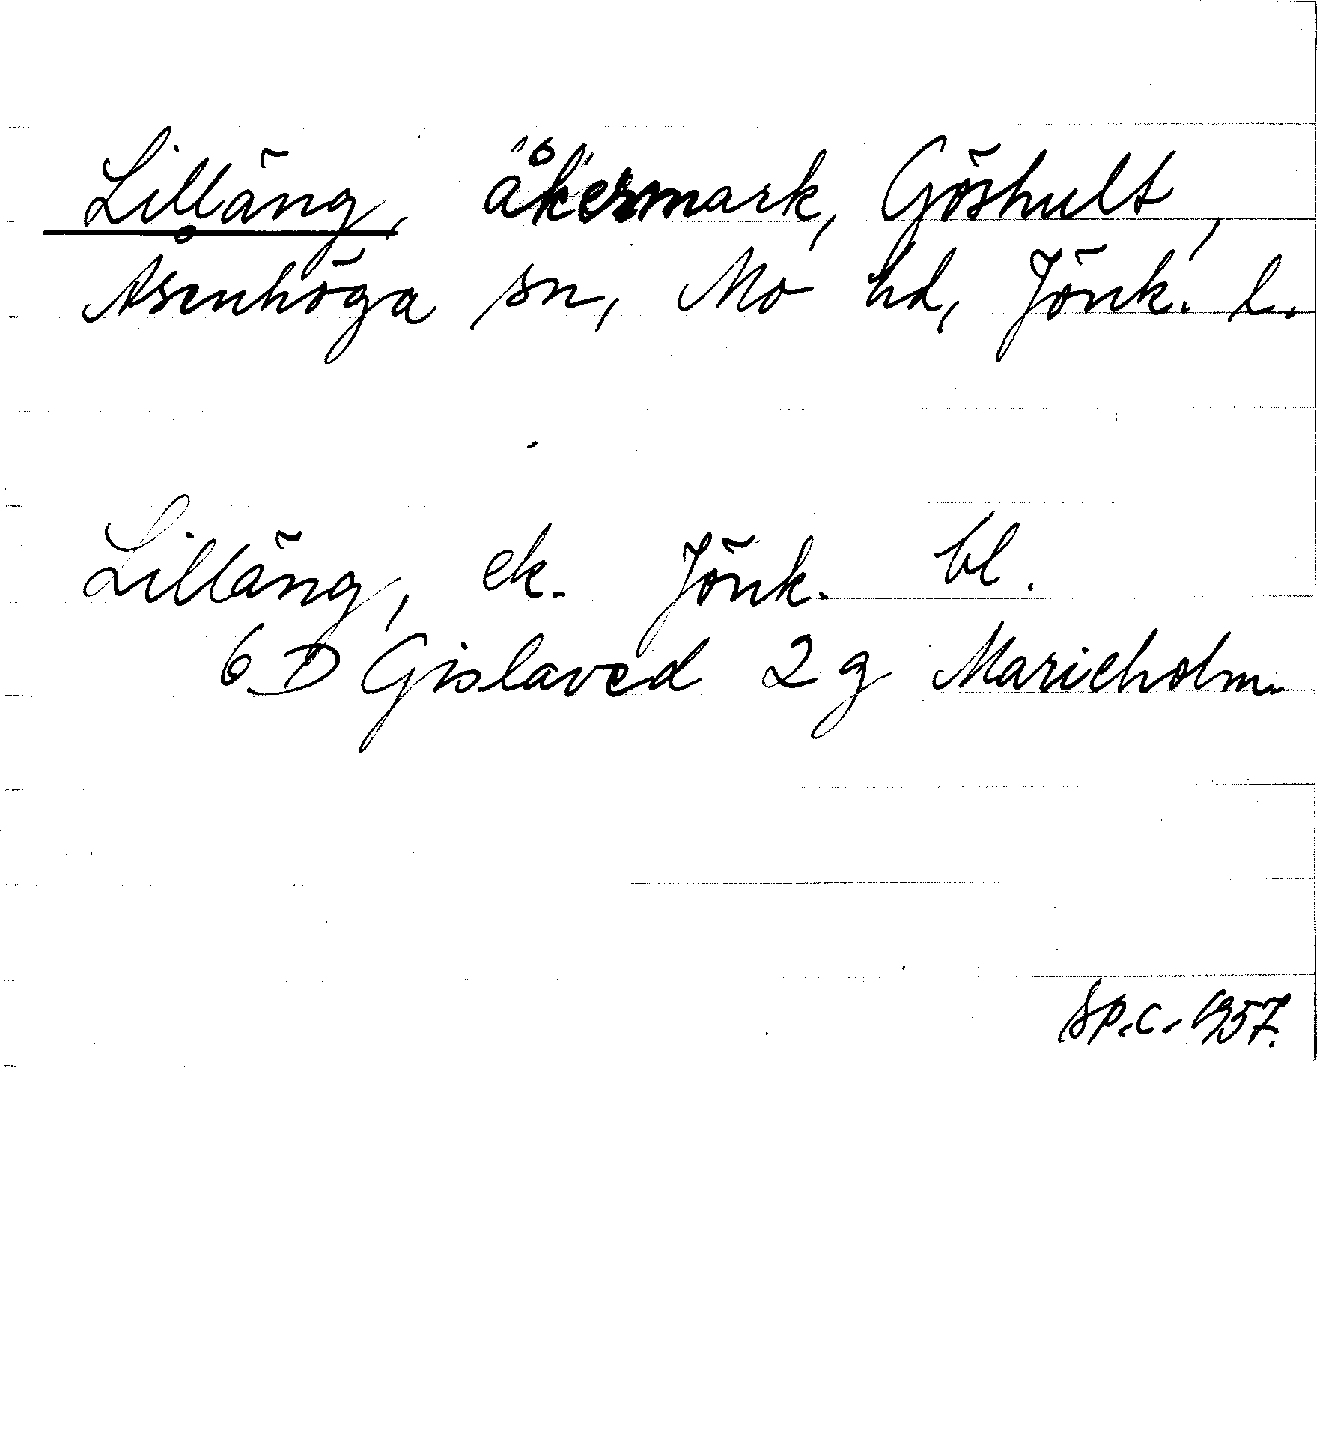 Lilläng, åkermark, Göshult,
Åsenhöga sn, Mo hd, Jönk. l.
Lilläng, ek. Jönk. bl.
6 D Gislaved 2 g Marieholm.
1957.